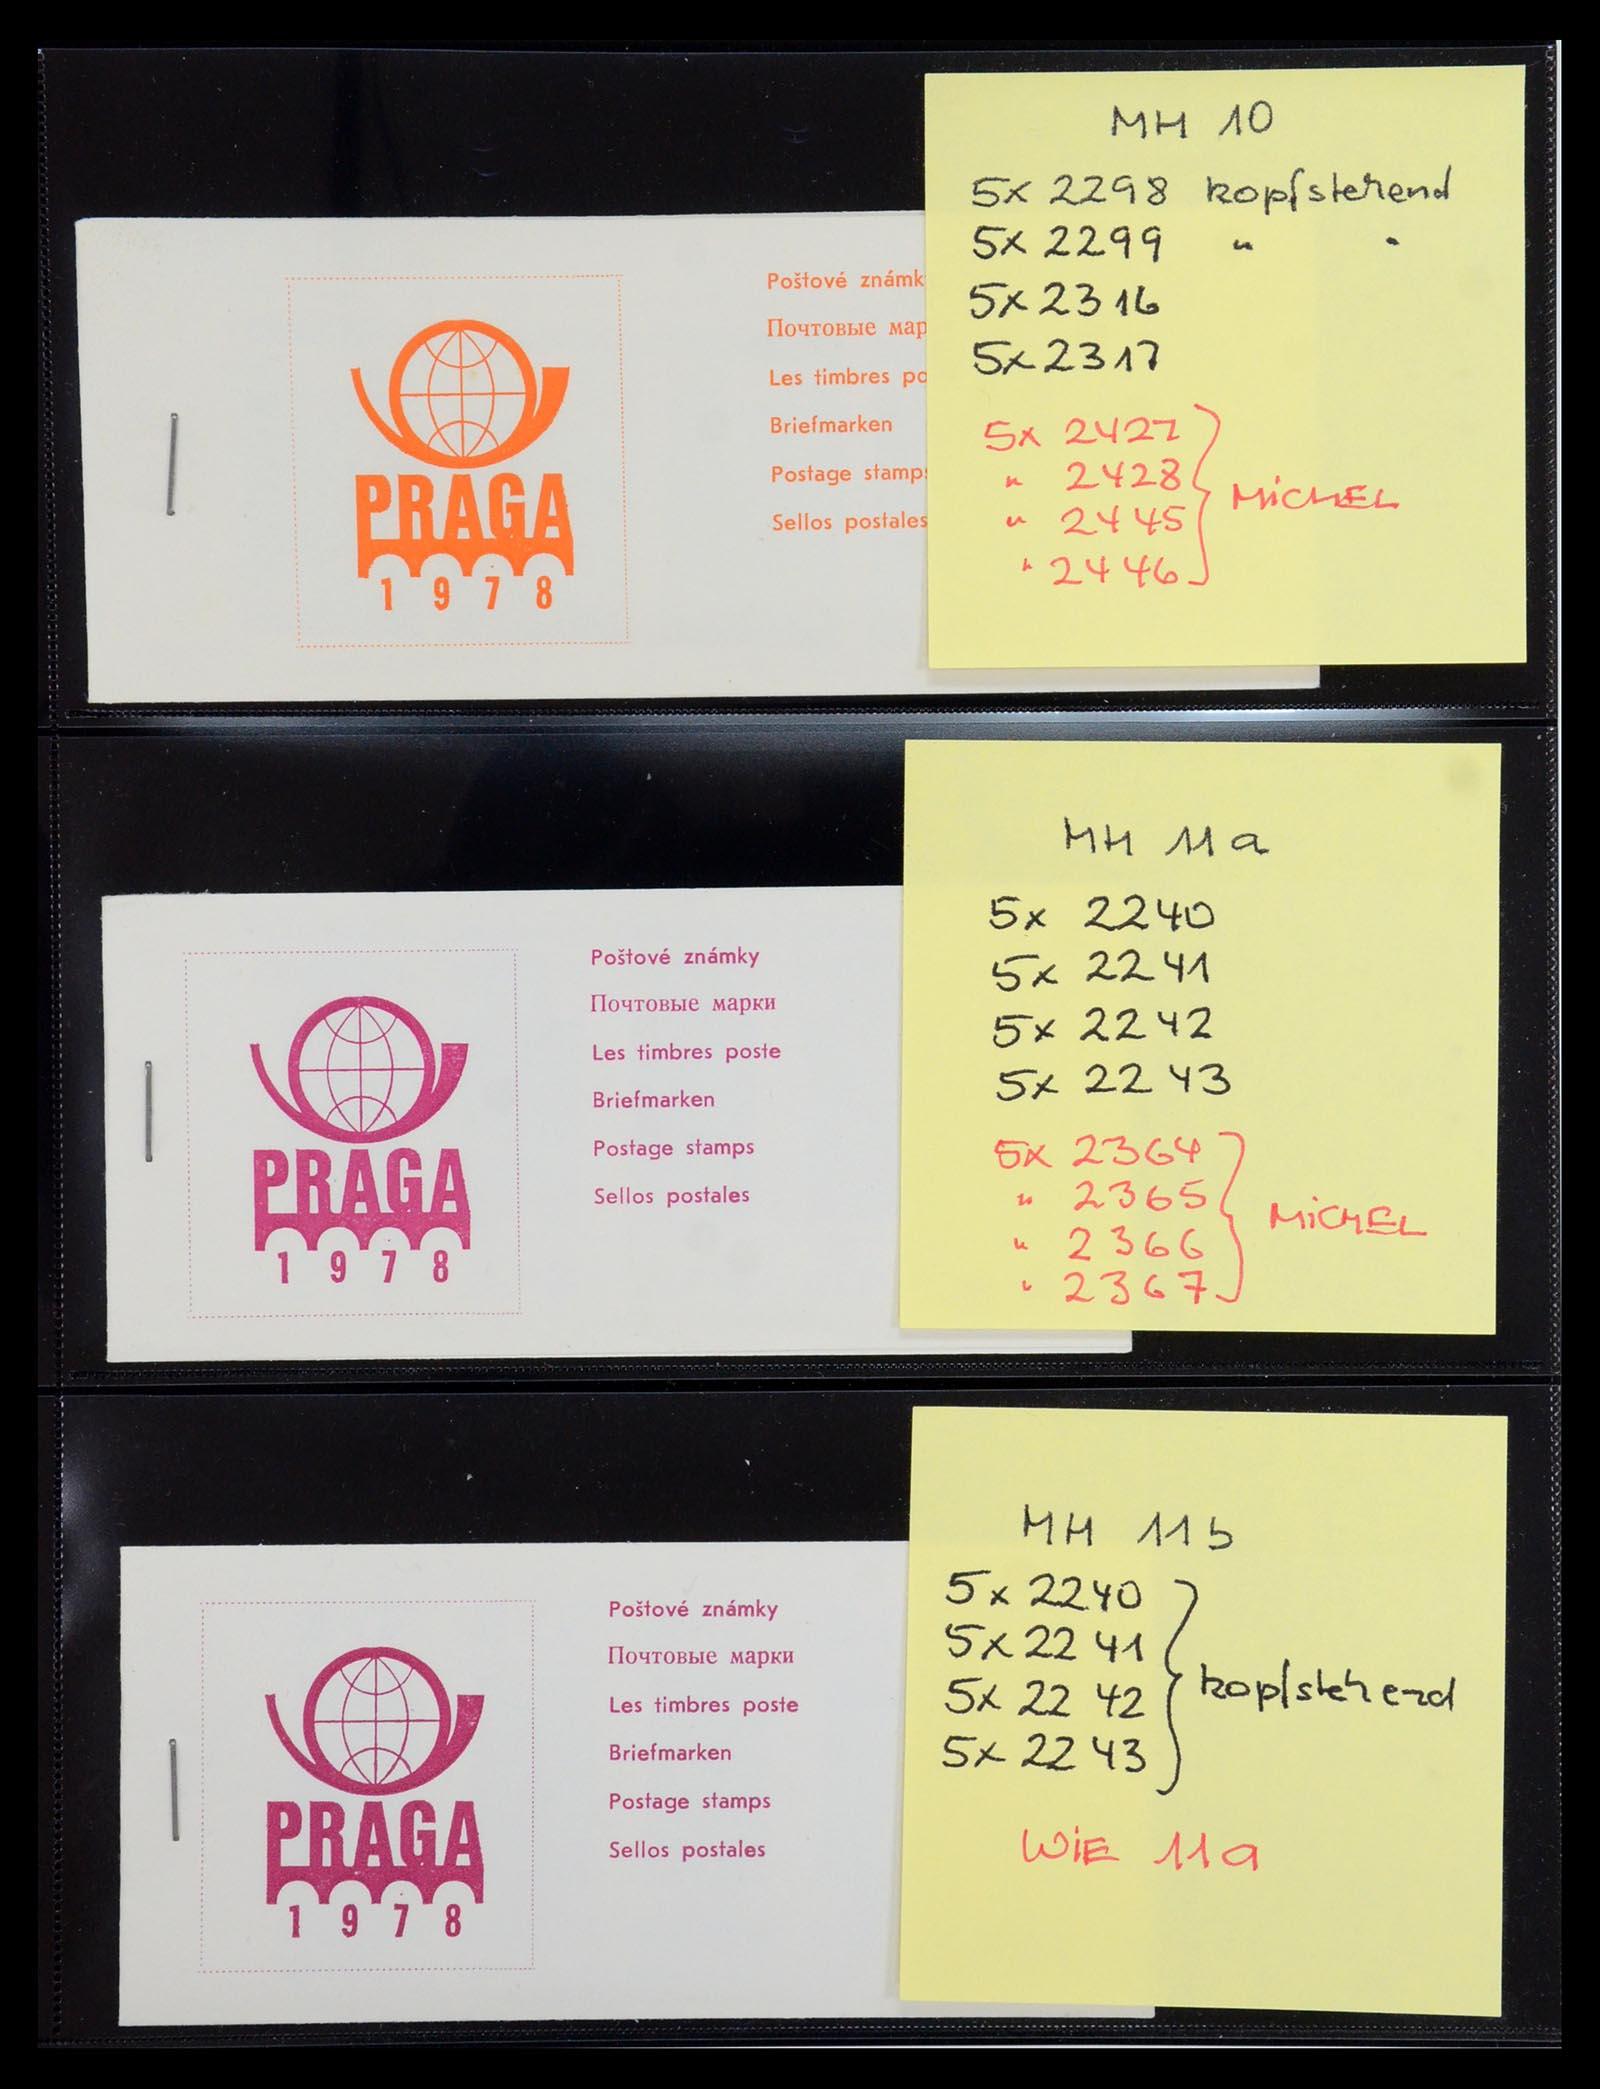 PRAGA
1 9 7 8
Poštové známk
Почтовые мар
Les timbres po
Briefmarken
Postage stamps
Sellos postales
MH 10
5x 2298 kopfstehend
5x 2299 " "
5x 2316
5x 2317
5x 2427
" 2428
" 2445
" 2446
MiCHEL
PRAGA
1 9 7 8
Poštové známky
Почтовые марки
Les timbres poste
Briefmarken
Postage stamps
Sellos postales
MH 11a
5x 2240
5x 2241
5x 2242
5x 2243
5x 2364
" 2365
" 2366
" 2367
MiCHEL
PRAGA
1 9 7 8
Poštové známky
Почтовые марки
Les timbres poste
Briefmarken
Postage stamps
Sellos postales
MH 11b
5x 2240
5x 2241
5x 2242
5x 2243
kopfstehend
WiE 11a